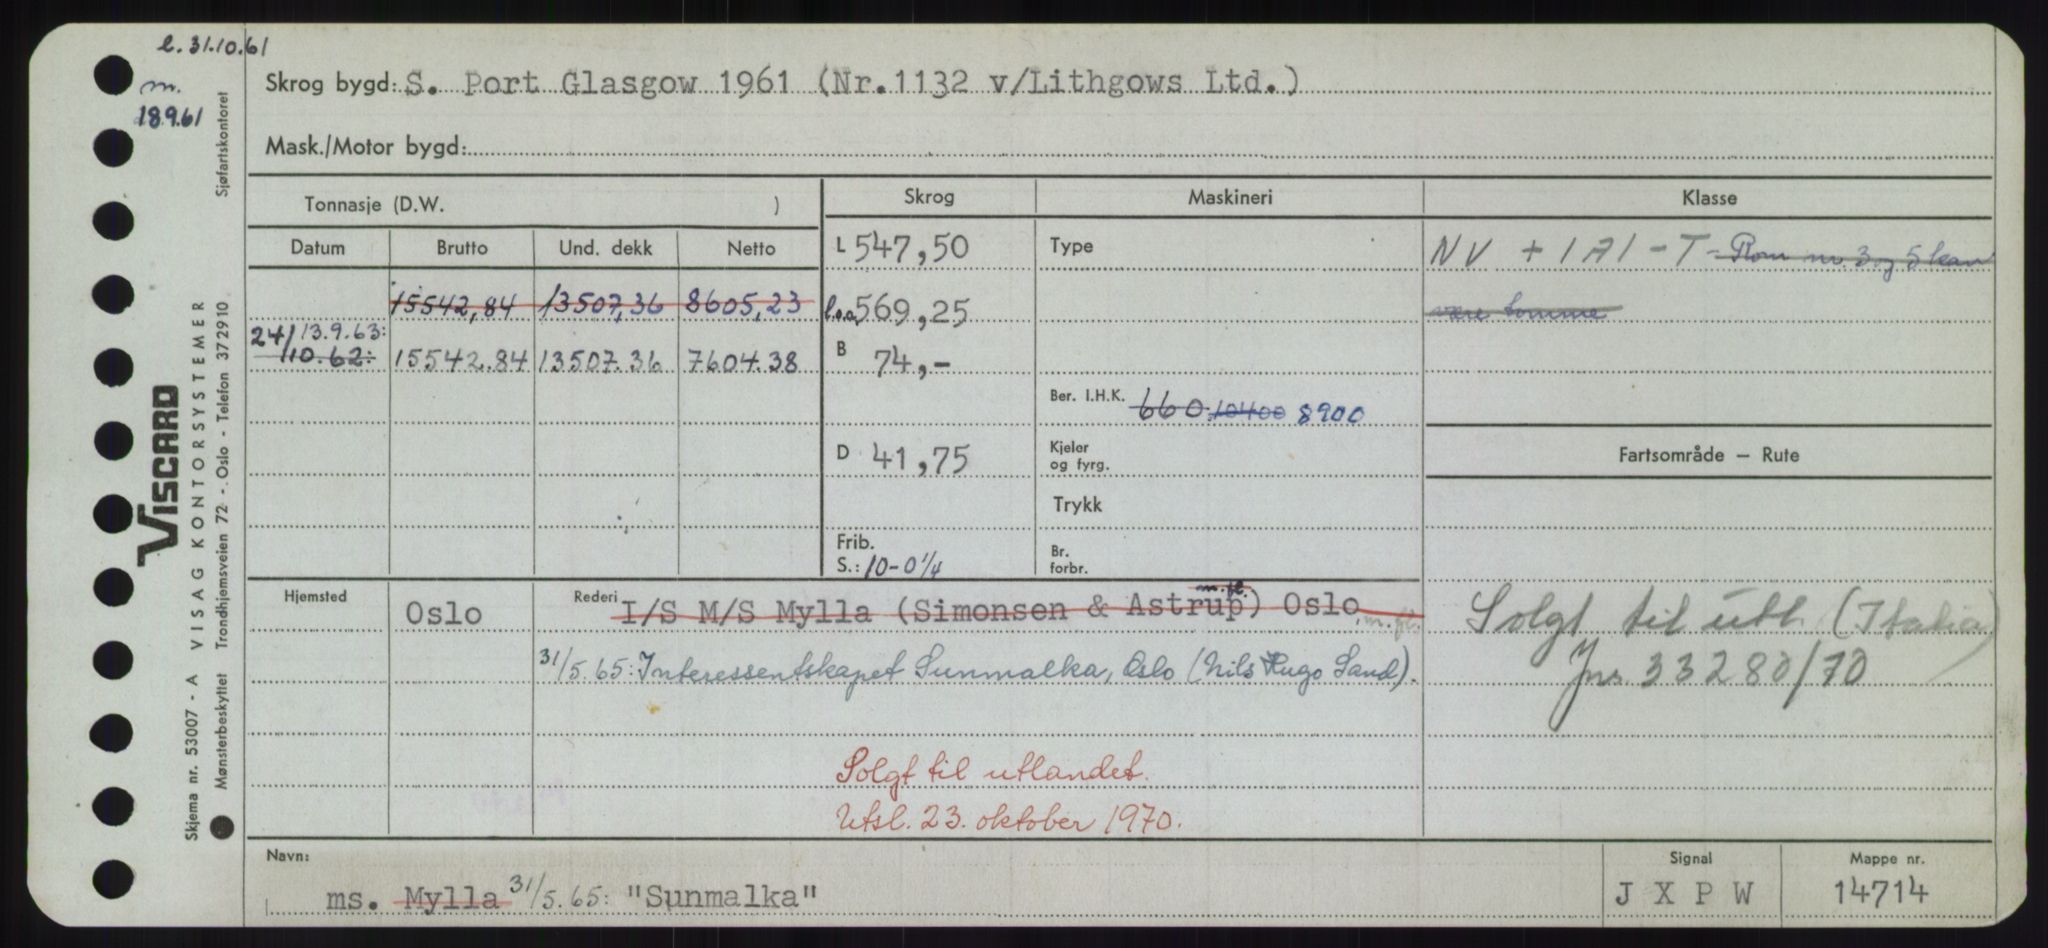 e. 31.10.61
m.
18.9.61
Skrog bygd: S. Port Glasgow 1961 (Nr.1132 v/Lithgows Ltd.)
Mask./Motor bygd:
Tonnasje (D.W. )
Skrog Maskineri Klasse
Datum Brutto Und. dekk Netto
L 547,50 Type NV + 1A1 - T - Rom nr. 3 og 5 kan
15542,84 13507,36 8605,23
l.o.a. 569,25 være tomme
24/10.62: 13.9.63: 15542.84 13507.36 7604.38
B 74,-
Ber. I.H.K. 660 10400 8900
D 41,75 Kjeler og fyrg.
Fartsområde – Rute
Trykk
Frib. S.: 10-0 1/4
Br. forbr.
Hjemsted Oslo
Rederi I/S M/S Mylla (Simonsen & Astrup) m.fl. Oslo m.fl.
31/5.65: Interessentskapet Sunmalka, Oslo (Nils Hugo Sand).
Solgt til utl. (Italia)
Jnr. 33280/70
Solgt til utlandet.
Utsl. 23. oktober 1970.
Navn: ms. Mylla 31/5.65: "Sunmalka"
Signal J X P W
Mappe nr. 14714
Sjøfartskontoret
VISCARD
VISAG KONTORSYSTEMER
Trondhjemsveien 72 - Oslo - Telefon 372910
Skjema nr. 53007 - A
Mønsterbeskyttet